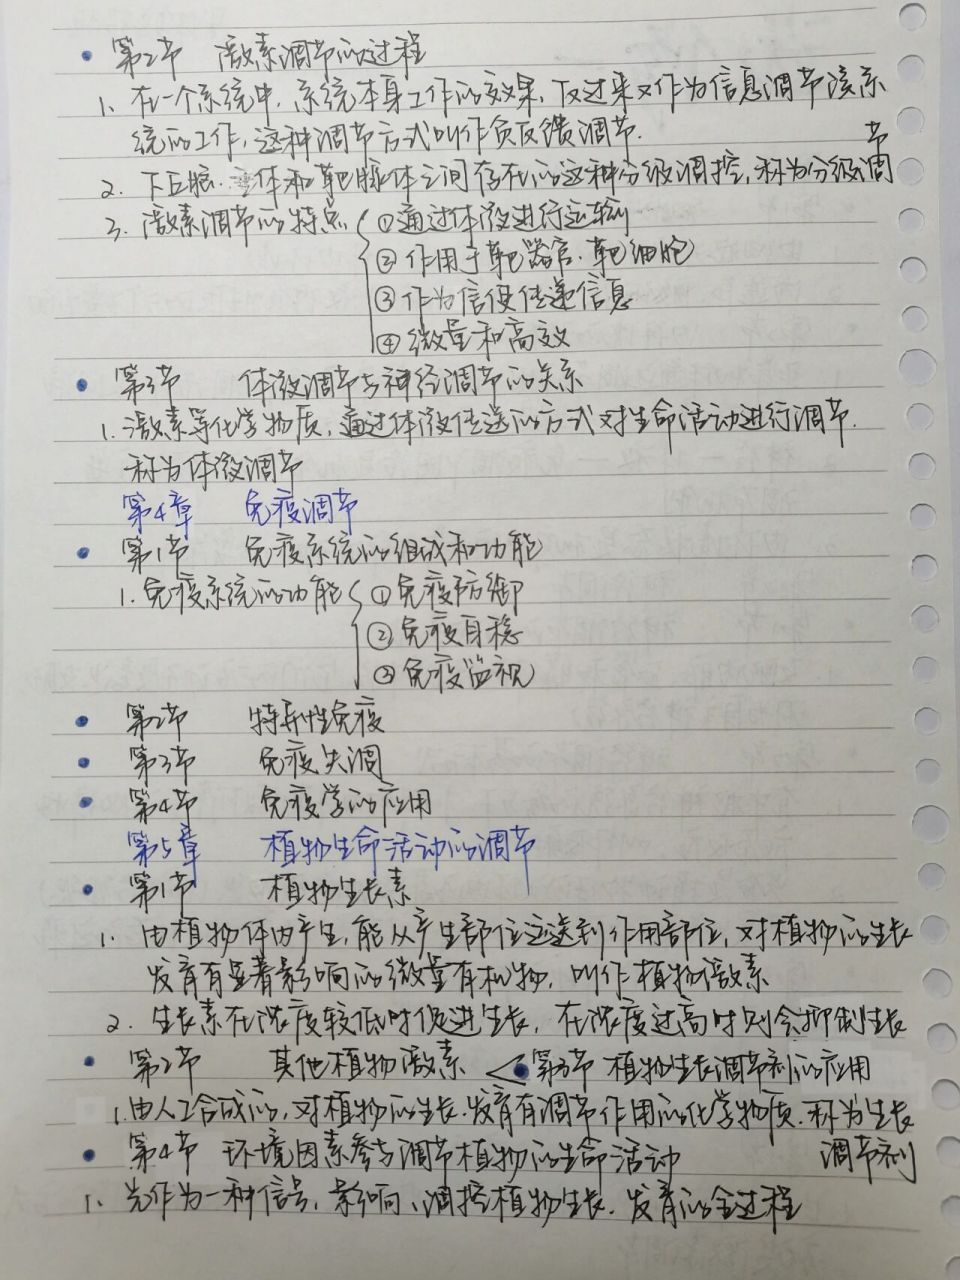 第2节 激素调节的过程
1. 在一个系统中,系统本身工作的效果,反过来又作为信息调节该系
统的工作,这种调节方式叫作负反馈调节.
2. 下丘脑.垂体和靶腺体之间存在的这种分级调控,称为分级调节
3. 激素调节的特点 ①通过体液进行运输
②作用于靶器官.靶细胞
③作为信使传递信息
④微量和高效
第3节 体液调节与神经调节的关系
1.激素等化学物质,通过体液传送的方式对生命活动进行调节.
称为体液调节
第4章 免疫调节
第1节 免疫系统的组成和功能
1.免疫系统的功能 ①免疫防御
②免疫自稳
③免疫监视
第2节 特异性免疫
第3节 免疫失调
第4节 免疫学的应用
第5章 植物生命活动的调节
第1节 植物生长素
1. 由植物体内产生,能从产生部位运送到作用部位,对植物的生长
发育有显著影响的微量有机物,叫作植物激素
2. 生长素在浓度较低时促进生长,在浓度过高时则会抑制生长
第2节 其他植物激素 第3节 植物生长调节剂的应用
1.由人工合成的,对植物的生长.发育有调节作用的化学物质.称为生长
调节剂
第4节 环境因素参与调节植物的生命活动
1. 光作为一种信号,影响、调控植物生长.发育的全过程